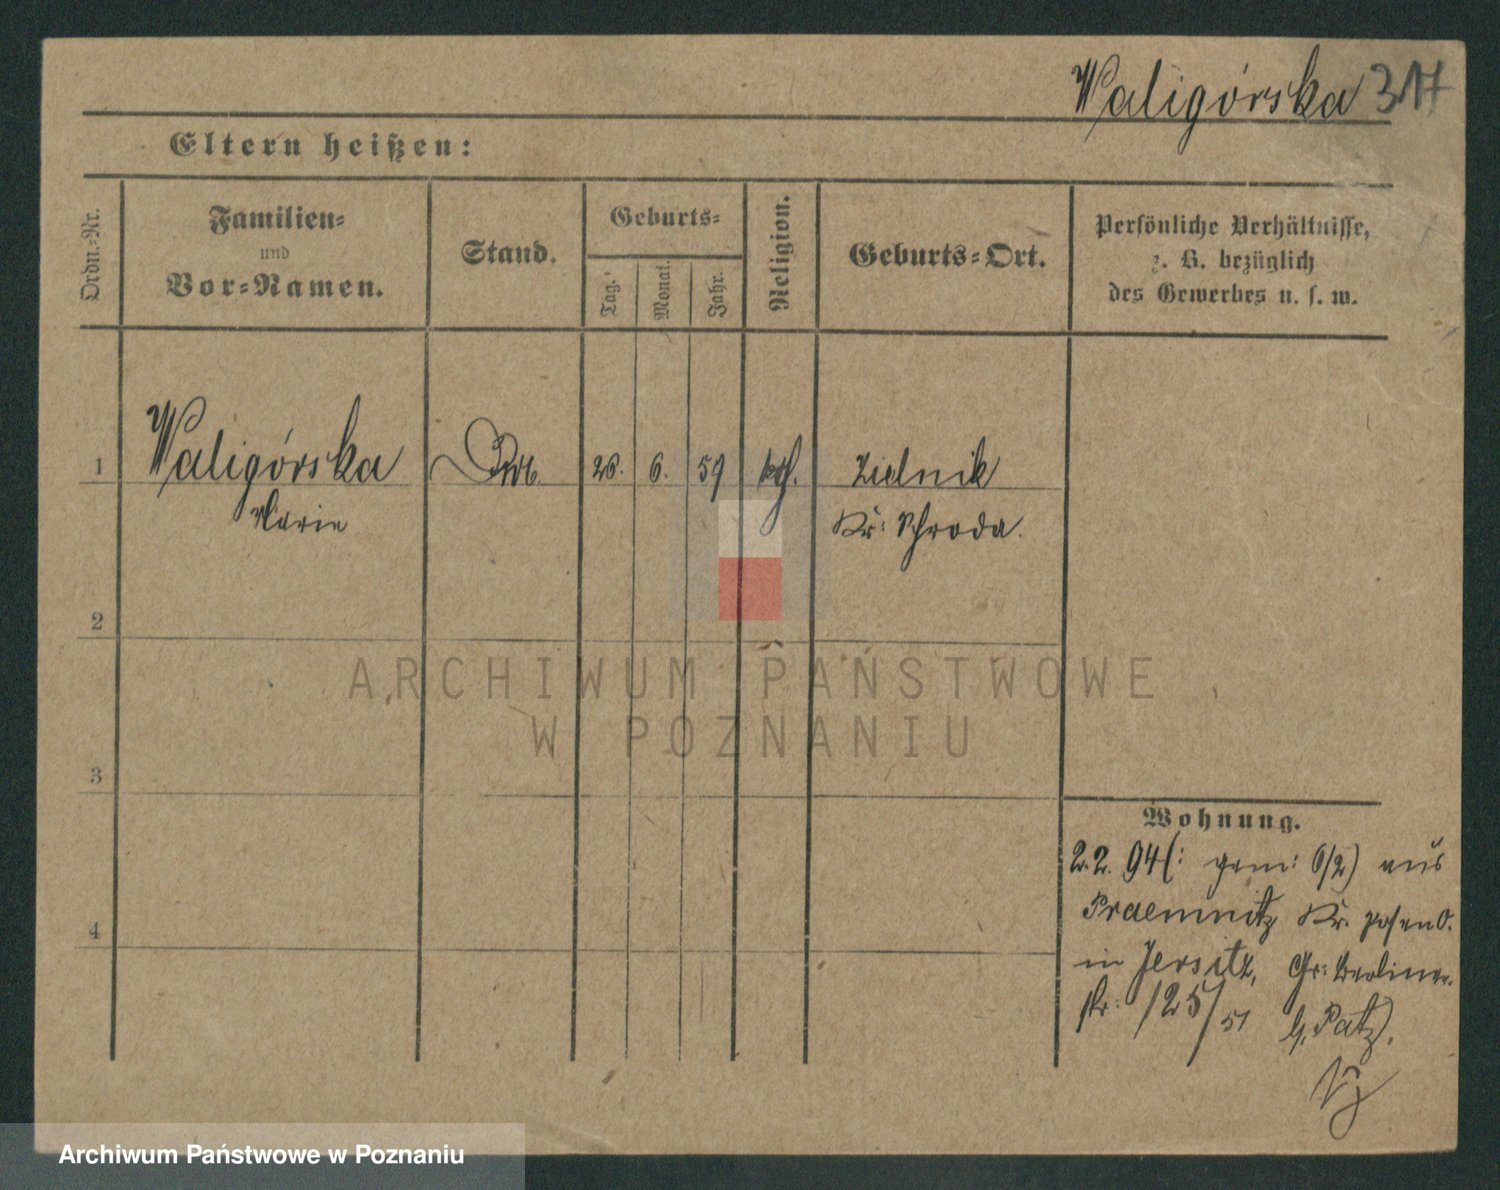 Waligórska 317
Eltern heißen:
Ordn.=Nr.
Familien=
und
Vor=Namen.
Stand.
Geburts=
Tag.
Monat.
Jahr.
Religion.
Geburts=Ort.
Persönliche Verhältnisse,
z. B. bezüglich
des Gewerbes u. s. w.
1
Waligórska
Marie
26.
6.
59
kth.
Zielnik
Kr: Schroda.
2
3
4
ARCHIWUM PAŃSTWOWE
W POZNANIU
Wohnung.
2.2. 94 (: gem: 6/2) aus
Kr. Posen O.
in Jersitz, Gr: Berliner-
str: 125/51 b, Patz).
Archiwum Państwowe w Poznaniu